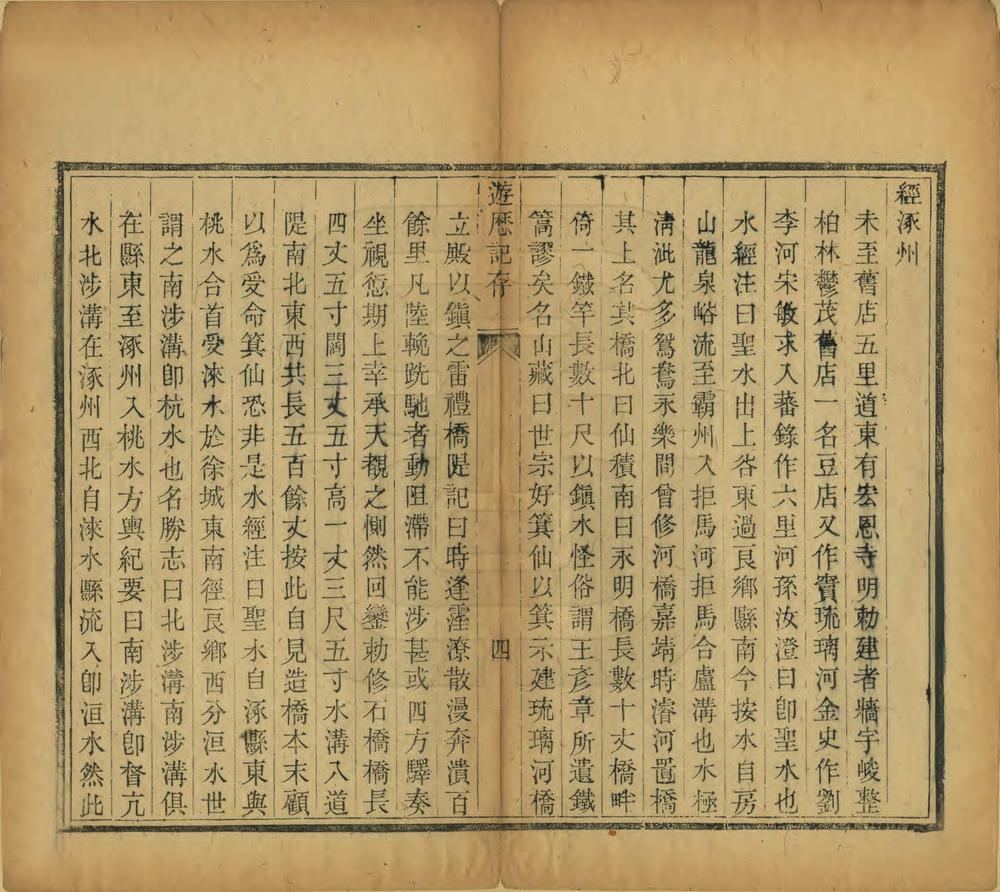 經涿州
未至舊店五里道東有宏恩寺明勅建者牆宇峻整
柏林鬱茂舊店一名豆店又作竇琉璃河金史作劉
李河宋敏求入蕃錄作六里河孫汝澄曰卽聖水也
水經注曰聖水出上谷東過良鄉縣南今按水自房
山龍泉峪流至霸州入拒馬河拒馬合盧溝也水極
淸泚尤多鴛鴦永樂間曾修河橋嘉靖時濬河置橋
其上名其橋北曰仙積南曰永明橋長數十丈橋畔
倚一鐵竿長數十尺以鎭水怪俗謂王彥章所遺鐵
篙謬矣名山藏曰世宗好箕仙以箕示建琉璃河橋
遊歷記存
四
立殿以鎭之雷禮橋隄記曰時逢霪潦散漫奔潰百
餘里凡陸輓跣馳者動阻滯不能涉甚或四方驛奏
坐視愆期上幸承天覩之惻然回鑾勅修石橋橋長
四丈五寸闊三丈五寸高一丈三尺五寸水溝八道
隄南北東西共長五百餘丈按此自見造橋本末顧
以爲受命箕仙恐非是水經注曰聖水自涿縣東與
桃水合首受淶水於徐城東南徑良鄉西分洹水世
謂之南涉溝卽杭水也名勝志曰北涉溝南涉溝俱
在縣東至涿州入桃水方輿紀要曰南涉溝卽督亢
水北涉溝在涿州西北自淶水縣流入卽洹水然此